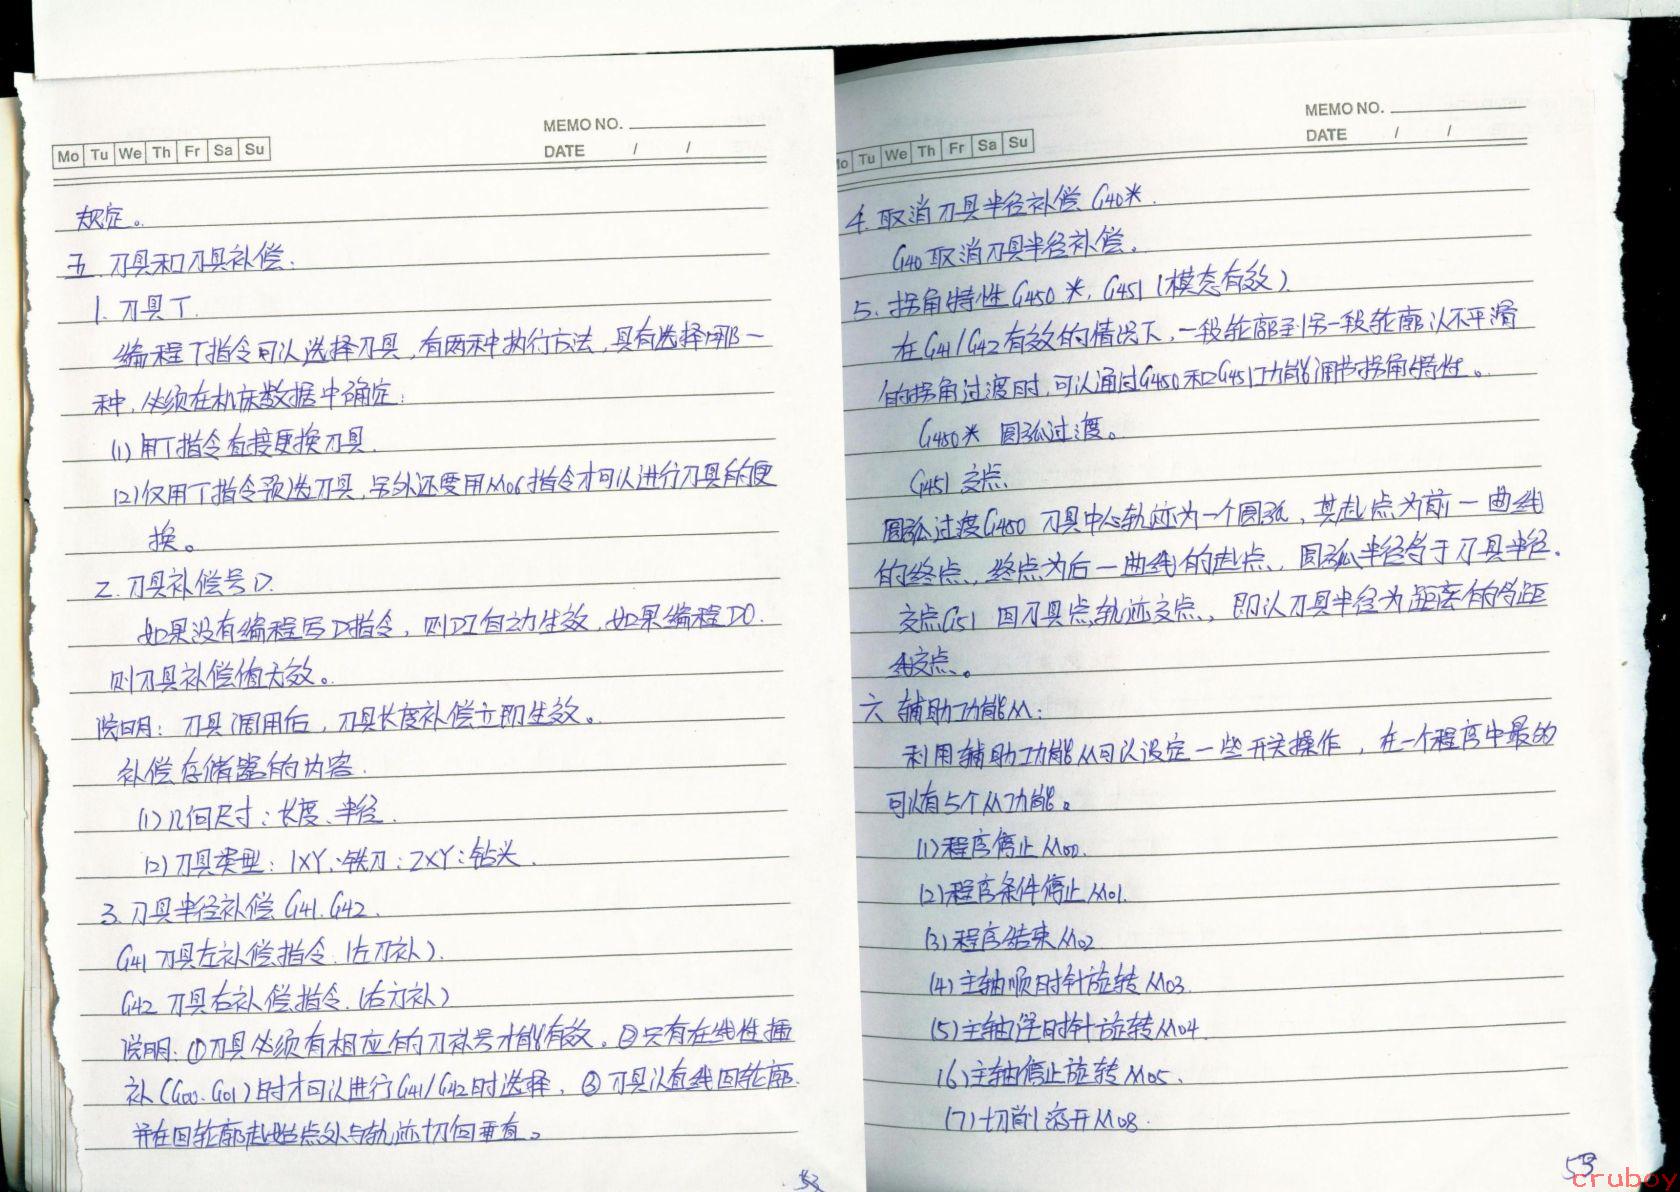 MEMO NO.
Mo Tu We Th Fr Sa Su
DATE / /
规定。
五.刀具和刀具补偿:
1.刀具T.
编程T指令可以选择刀具,有两种执行方法,具有选择哪一
种,必须在机床数据中确定:
(1)用T指令直接更换刀具.
(2)仅用T指令预选刀具,另外还要用M06指令才可以进行刀具的更
换。
2.刀具补偿号D.
如果没有编程写D指令,则D1自动生效,如果编程D0.
则刀具补偿值无效。
说明:刀具调用后,刀具长度补偿立即生效。
补偿存储器的内容.
(1)几何尺寸:长度、半径.
(2)刀具类型:1XY:铣刀:2XY:钻头.
3.刀具半径补偿 G41.G42.
G41 刀具左补偿指令.(左刀补).
G42 刀具右补偿指令.(右刀补)
说明:①刀具必须有相应的刀补号才能有效。②只有在线性插
补(G00.G01)时才可以进行G41/G42时选择,③刀具以直线回轮廓.
并在回轮廓起始点处与轨迹切向垂直。
MEMO NO.
Mo Tu We Th Fr Sa Su
DATE / /
4.取消刀具半径补偿 G40米.
G40取消刀具半径补偿.
5.拐角特性G450米,G451(模态有效)
在G41/G42有效的情况下,一段轮廓到另一段轮廓以不平滑
的拐角过渡时,可以通过G450和G451功能调节拐角特性。
G450米 圆弧过渡。
G451 交点.
圆弧过渡G450 刀具中心轨迹为一个圆弧,其起点为前一曲线
的终点,终点为后一曲线的起点,圆弧半径等于刀具半径.
交点G51 回刀具点轨迹交点,即以刀具半径为距离的等距
线交点。
六 辅助功能M:
利用辅助功能M可以设定一些开关操作,在一个程序中最的
可以有5个M功能。
(1)程序停止M00.
(2)程序条件停止M01.
(3)程序结束M02
(4)主轴顺时针旋转M03.
(5)主轴逆时针旋转M04.
(6)主轴停止旋转M05.
(7)切削液开M08.
53
cruboy